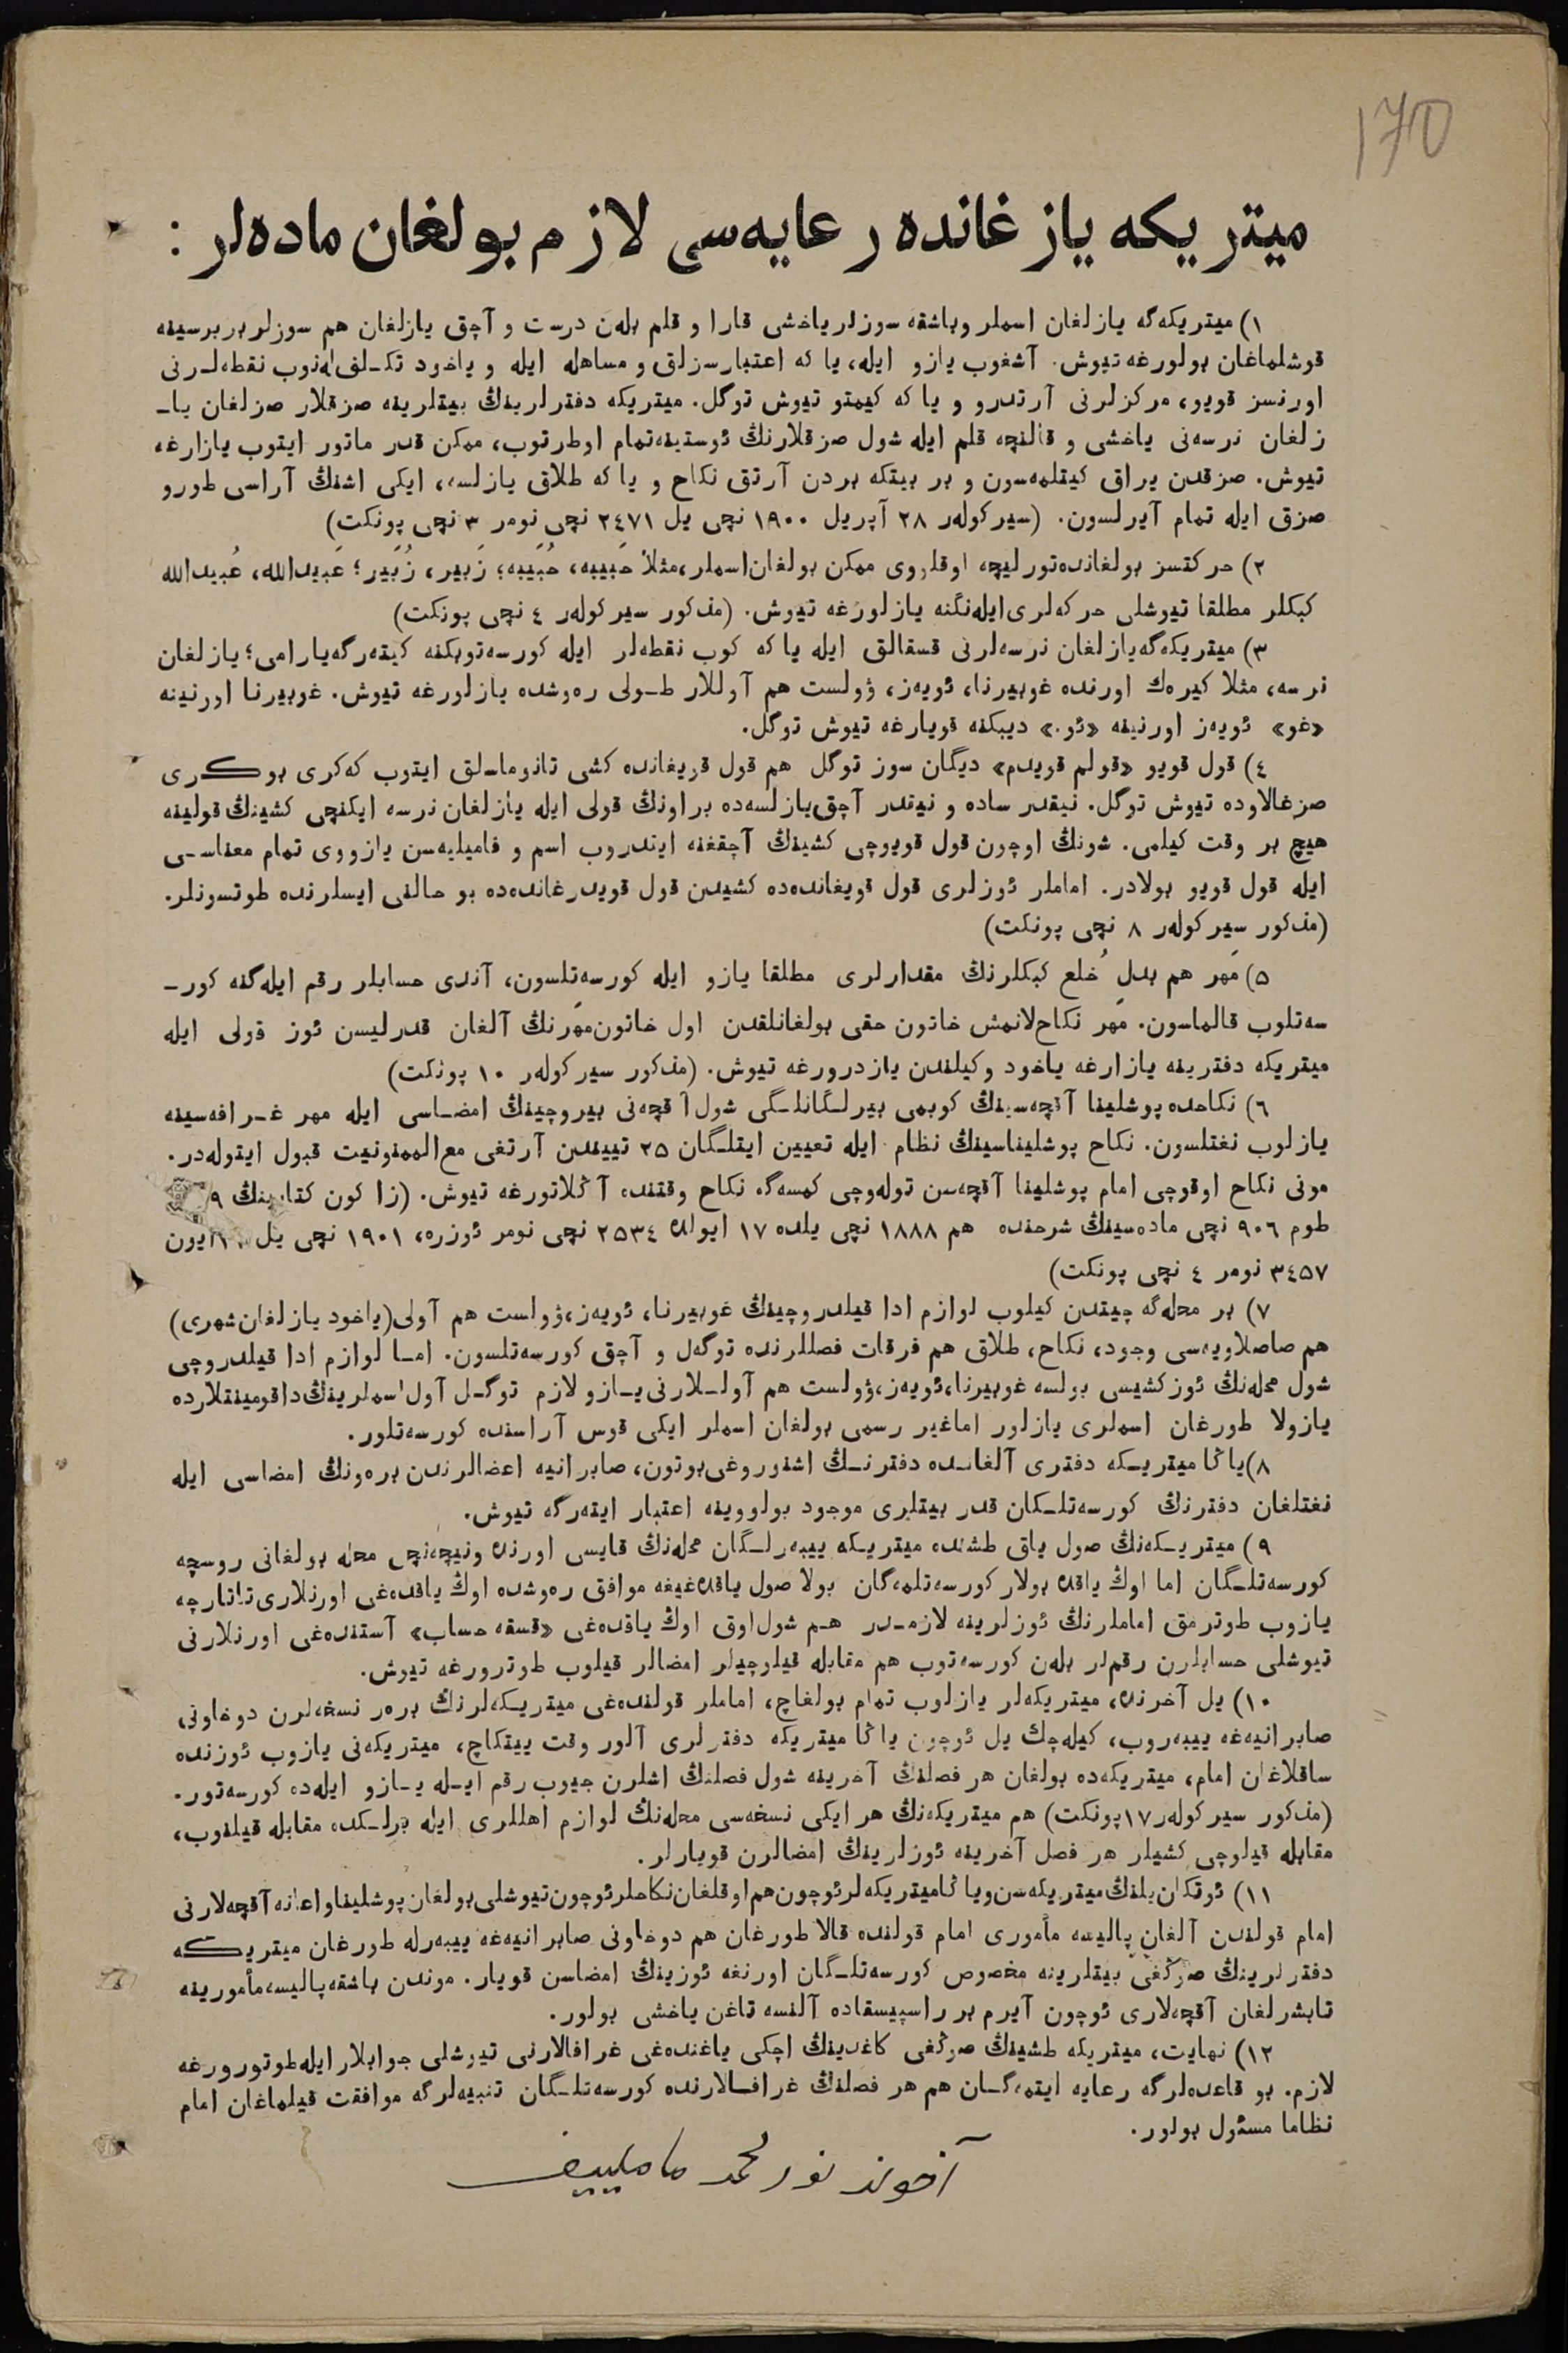 170
میتریکه یازغانده رعایه‌سی لازم بولغان ماده‌لر :
١) میتریکه‌گه یازلغان اسملر وباشقه سوزلر یاخشی قارا و قلم بله‌ن درست و آچق یازلغان هم سوزلر بربرسینه
قوشلماغان بولورغه تیوش. آشغوب یازو ایله، یا که اعتبارسزلق و مساهله ایله و یاخود تکـلف‌له‌نوب نقطه‌لـرنی
اورنسز قویو، مرکزلرنی آرتدرو و یا که کیمتو تیوش توگل. میتریکه دفترلرینڭ بیتلرینه صزقلار صزلغان یا۔
زلغان نرسه‌نی یاخشی و قالنچه قلم ایله شول صزقلارنڭ ئوستینه‌تمام اوطرتوب، ممکن قدر ماتور ایتوب یازارغه
تیوش. صزقدن یراق کیتلمه‌سون و بر بیتکه بردن آرتق نکاح و یا که طلاق یازلسه، ایکی اشنڭ آراسی طورو
صزق ایله تمام آیرلسون. (سیرکولەر ٢٨ آپریل ١٩٠٠ نچی یل ٢٤٧١ نچی نومر ٣ نچی پونکت)
٢) حرکتسز بولغانده‌تورلیچه اوقلوی ممکن بولغان‌اسملر،مثلاً حَبیبه، حُبَیبه؛ زَبیر، زُبَیر؛ عَبیدالله، عُبیدالله
کبکلر مطلقا تیوشلی حرکه‌لری‌ایله‌نگنه یازلورغه تیوش. (مذکور سیرکولەر ٤ نچی پونکت)
٣) میتریکه‌گه‌یازلغان نرسه‌لرنی قسقالق ایله یا که کوب نقطه‌لر ایله کورسه‌توبکنه کیته‌رگه‌یارامی؛ یازلغان
نرسه، مثلا کیره‌ك اورنده غوبیرنا، ئویه‌ز، وۋلست هم آوللار طـولی ره‌وشده یازلورغه تیوش. غوبیرنا اورنینه
«غو» ئویه‌ز اورنینه «ئو.» دیبکنه قویارغه تیوش توگل.
٤) قول قویو «قولم قویدم» دیگان سوز توگل هم قول قویغانده کشی تانوماـلق ایتوب که‌کری بوکری
صزغالاوده تیوش توگل. نیقدر ساده و نیندر آچق‌یازلسه‌ده براونڭ قولی ایله یازلغان نرسه ایکنچی کشینڭ قولینه
هیچ بر وقت کیلمی. شونڭ اوچون قول قویوچی کشینڭ آچقغنه ایتدروب اسم و فامیلیه‌سن یازووی تمام معناسـی
ایله قول قویو بولادر. اماملر ئوزلری قول قویغانده‌ده کشیدن قول قویدرغانده‌ده بو حالنی ایسلرنده طوتسونلر.
(مذکور سیرکولەر ٨ نچی پونکت)
٥) مَهر هم بدلِ خُلع کبکلرنڭ مقدارلری مطلقا یازو ایله کورسه‌تلسون، آندی حسابلر رقم ایله‌گنه کور۔
سه‌تلوب قالماسون. مَهر نکاح‌لانمش خاتون حقی بولغانلقدن اول خاتون‌مهرنڭ آلغان قدرلیسن ئوز قولی ایله
میتریکه دفترینه یازارغه یاخود وکیلندن یازدرورغه تیوش. (مذکور سیرکولەر ١٠ پونکت)
٦) نکاحده پوشلینا آقچه‌سینڭ کوبمی بیرلـگانلـگی شول آقچه‌نی بیروچینڭ امضـاسی ایله مهر غـرافه‌سینه
یازلوب نغتلسون. نکاح پوشلیناسینڭ نظام ایله تعیین ایتلـگان ٢٥ تییندن آرتغی مع‌الممنونیت قبول ایتوله‌در.
مونی نکاح اوقوچی امام پوشلینا آقچه‌سن توله‌وچی کمسه‌گه نکاح وقتنده آڭلاتورغه تیوش. (زاکون کتابینڭ ٩
طوم ٩٠٦ نچی ماده‌سینڭ شرحنده هم ١٨٨٨ نچی یلده ١٧ ایولده ٢٥٣٤ نچی نومر ئوزره، ١٩٠١ نچی یل ایون
٣٤٥٧ نومر ٤ نچی پونکت)
٧) بر محله‌گه چیتدن کیلوب لوازم ادا قیلدروچینڭ غوبیرنا، ئویه‌ز،وۋلست هم آولی(یاخود یازلغان‌شهری)
هم صاصلاویه‌سی وجود، نکاح، طلاق هم فرقات فصللرنده توگه‌ل و آچق کورسه‌تلسون. امـا لوازم ادا قیلدروچی
شول محله‌نڭ ئوز کشیسی بولسه غوبیرنا،ئویه‌ز،وۋلست هم آولـلارنی یـازو لازم توگـل آول اسملرینڭ‌داقومینتلارده
یازولا طورغان اسملری یازلور اماغیر رسمی بولغان اسملر ایکی قوس آراسنده کورسه‌تلور.
٨)یاڭا میتریـکه دفتری آلغانـده دفترنـڭ اشنوروغی‌بوتون، صابرانیه اعضالرندن بره‌ونڭ امضاسی ایله
نغتلغان دفترنڭ کورسه‌تلـکان قدر بیتلری موجود بولووینه اعتبار ایته‌رگه تیوش.
٩) میتریـکه‌نڭ صول یاق طشنده میتریـکه ییبه‌رلـگان محله‌نڭ قایسی اورنده ونیچه‌نچی محله بولغانی روسچه
کورسه‌تلـگان اما اوڭ یاقده بولار کورسه‌تلمه‌گان بولا صول یاقده‌غیغه موافق ره‌وشده اوڭ یاقده‌غی اورنلاری‌تاتارچه
یازوب طوترمق اماملرنڭ ئوزلرینه لازمـدر هـم شول‌اوق اوڭ یاقده‌غی «قسقه حساب» آستنده‌غی اورنلارنی
تیوشلی حسابلرن رقملر بله‌ن کورسه‌توب هم مقابله قیلوچیلر امضالر قیلوب طوترورغه تیوش.
١٠) یل آخرنده، میتریکه‌لر یازلوب تمام بولغاچ، اماملر قولنده‌غی میتریـکه‌لرنڭ بره‌ر نسخه‌لرن دوخاونی
صابرانیه‌غه ییبه‌روب، کیله‌چك یل ئوچون یاڭا میتریکه دفترلری آلور وقت ییتکاچ، میتریکه‌نی یازوب ئوزنده
ساقلاغان امام، میتریکه‌ده بولغان هر فصلنڭ آخرینه شول فصلنڭ اشلرن جیوب رقم ایـله یـازو ایله‌ده کورسه‌تور.
(مذکور سیرکولەر ١٧پونکت) هم میتریکه‌نڭ هر ایکی نسخه‌سی محله‌نڭ لوازم اهللری ایله برلـکده مقابله قیلنوب،
مقابله قیلوچی کشیلر هر فصل آخرینه ئوزلرینڭ امضالرن قویارلر.
١١) ئوتکان‌یلنڭ‌میتریکه‌سن‌ویاڭامیتریکه‌لرئوچون‌هم‌اوقلغان‌نکاحلرئوچون‌تیوشلی‌بولغان‌پوشلیناواعانه‌آقچه‌لارنی
امام قولندن آلغان پالیسه مأموری امام قولنده قالا طورغان هم دوخاونی صابرانیه‌غه ییبه‌رله طورغان میتریکه
دفترلرینڭ صوڭغی بیتلرینه مخصوص کورسه‌تلـگان اورنغه ئوزینڭ امضاسن قویار. موندن باشقه‌پالیسه‌مأمورینه
تابشرلغان آقچه‌لاری ئوچون آیرم بر راسپیسقاده آلنسه تاغن یاخشی بولور.
١٢) نهایت، میتریکه طشینڭ صوڭغی کاغدینڭ اچکی یاغنده‌غی غرافالارنی تیوشلی جوابلار ایله‌طوتورورغه
لازم. بو قاعده‌لرگه رعایه ایتمه‌گـان هم هر فصلنڭ غرافـالارنده کورسه‌تلـگان تنبیه‌لرگه موافقت قیلماغان امام
نظاما مسئول بولور.
آخوند نور محمد مامليیف